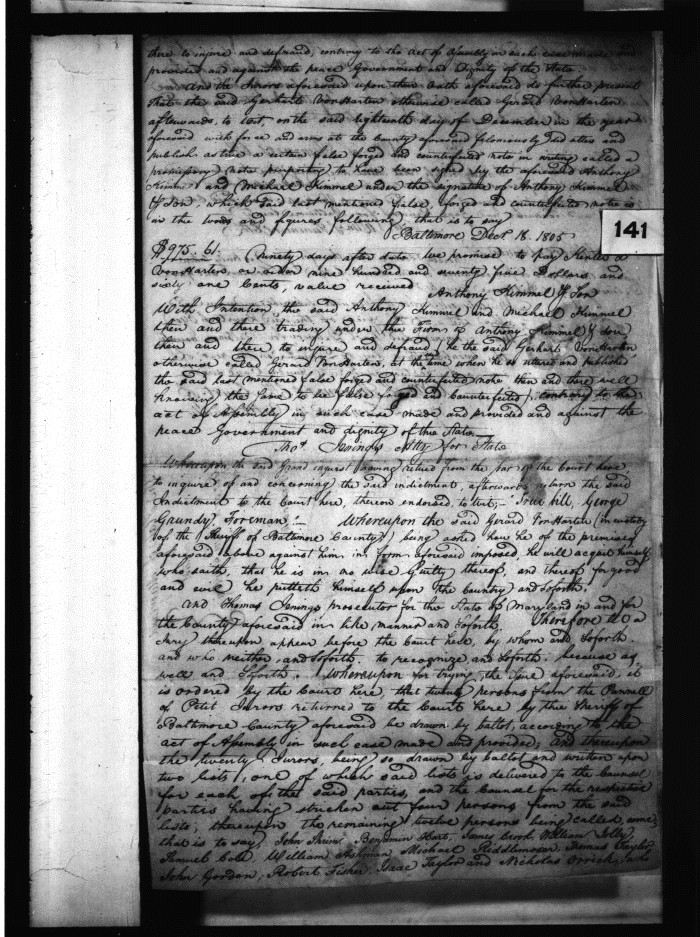 there to injure and defraud, contrary to the act of Assembly in such case made and
provided and against the peace Government and Dignity of the State.
And the Jurors aforesaid upon their oath aforesaid do further present
that the said Gerhart VonHarten otherwise called Gerard VonHarten,
afterwards, to wit, on the said eighteenth day of December in the year
aforesaid with force and arms at the County aforesaid feloniously did utter and
publish as true a certain false forged and counterfeited note in writing called a
promissory note purporting to have been signed by the aforesaid Anthony
Kimmel and Michael Kimmel under the signature of Anthony Kimmel
& Son, which said last mentioned false, forged and counterfeited note is
in the words and figures following, that is to say
Baltimore Decr. 18. 1805
141
$975. 61. Ninety days after date we promise to pay
VonHarten, or order nine hundred and seventy five Dollars and
sixty one Cents, value received
Anthony Kimmel & Son
With Intention, the said Anthony Kimmel and Michael Kimmel
then and there trading under the Firm of Anthony Kimmel & Son
then and there to injure and defraud, (he the said Gerhart VonHarten,
otherwise called Gerard VonHarten, at the time when he so uttered and published
the said last mentioned false forged and counterfeited note then and there well
knowing the same to be false forged and Counterfeited), contrary to the
act of Assembly in such case made and provided and against the
peace Government and dignity of the State
Thos. Jenings Atty for State
Whereupon the said Grand inquest having retired from the bar of the Court here,
to inquire of and concerning the said indictment, afterwards return the said
Indictment to the Court here, thereon endorsed to wit; "True bill, George
Grundy, Foreman. Whereupon the said Gerard VonHarten (in custody
of the Sheriff of Baltimore County) being asked how he of the premises
aforesaid above against him in form aforesaid imposed, he will acquit himself
who saith, that he is in no wise Guilty thereof, and thereof for good
and evil he putteth himself upon the Country and soforth.
And Thomas Jenings prosecutor for the State of Maryland in and for
the County aforesaid in like manner and soforth. Therefore let a
Jury thereupon appear before the Court here, by whom and soforth.
and who neither, and soforth. to recognize and soforth. because as
well and soforth. Whereupon for trying the Issue aforesaid, it
is ordered by the Court here, that twenty persons from the Pannell
of Petit Jurors returned to the Court here by the Sheriff of
Baltimore County aforesaid be drawn by ballot, according to the
act of Assembly in such case made and provided, And thereupon
the twenty Jurors, being so drawn by ballot and written upon
two lists, one of which said lists is delivered to the Counsel
for each of the said parties, and the Counsel for the respective
parties having stricken out four persons from the said
lists, thereupon the remaining twelve persons being called, come
that is to say, John Benjamin Hart, James William Jolly,
Samuel Cole, William Ashman Michael Diddlemoser, Thomas Taylor
John Gordon, Robert Fisher, Isaac Taylor and Nicholas